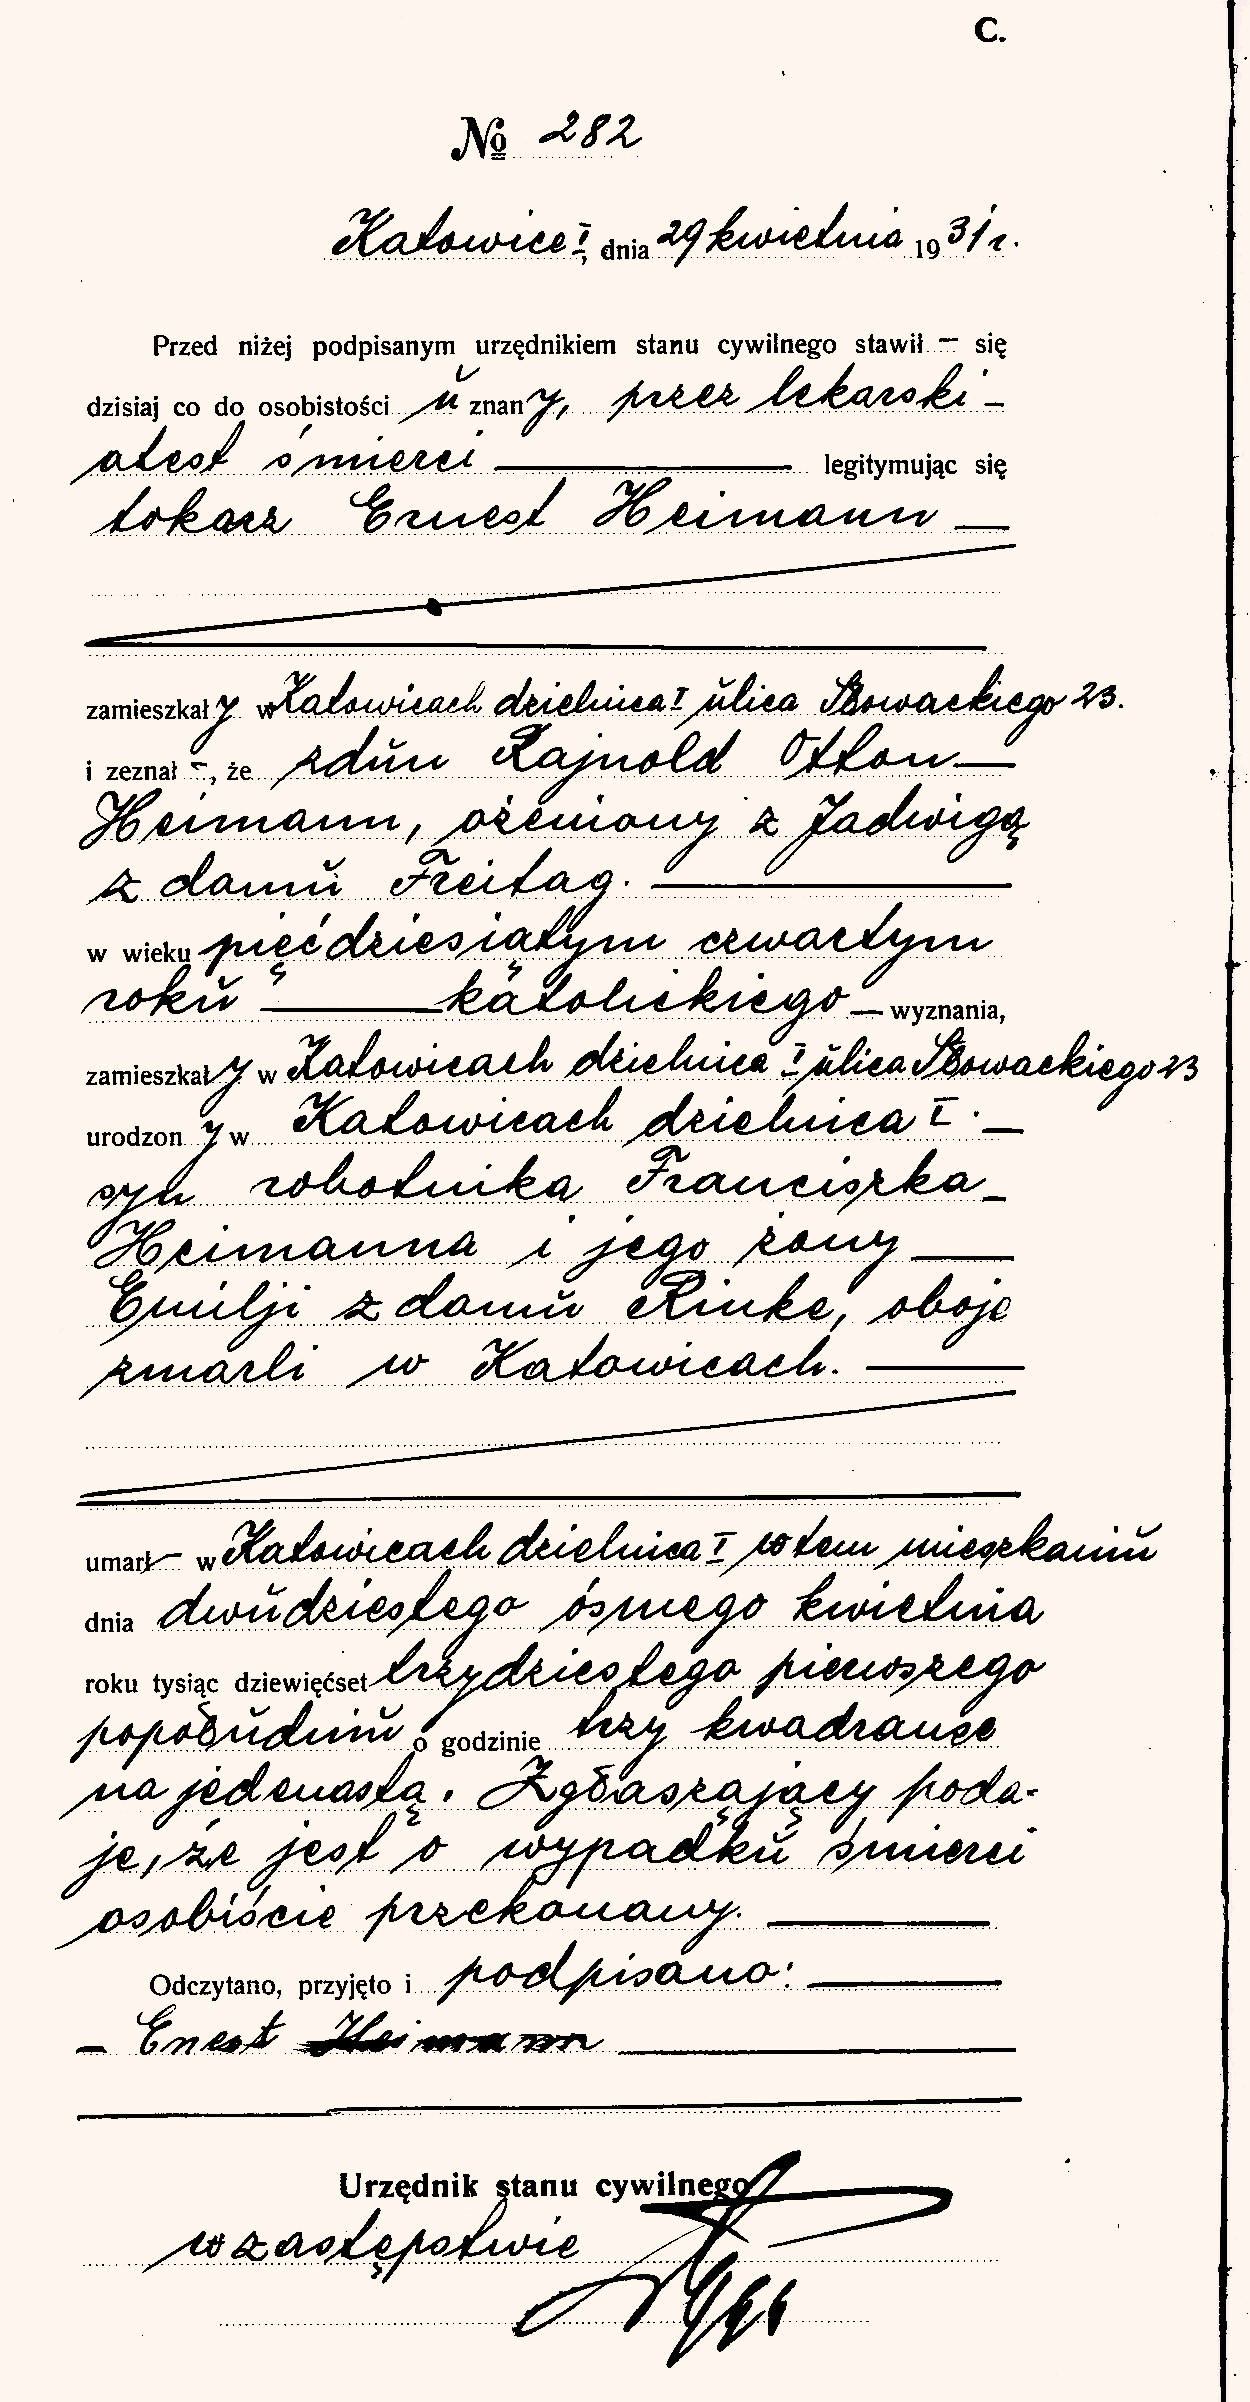 C.
№ 282
Katowice I, dnia 29 kwietnia 1931 r.
Przed niżej podpisanym urzędnikiem stanu cywilnego stawił – się
dzisiaj co do osobistości uznany, przez lekarski
atest śmierci legitymując się
tokarz Ernest Heimann
zamieszkały w Katowicach dzielnica I ulica Słowackiego 23.
i zeznał –, że zdun Rajnold Otton
Heimann, ożeniony z Jadwigą
z domu Freitag.
w wieku pięćdziesiątym czwartym
roku katolickiego wyznania,
zamieszkały w Katowicach dzielnica I ulica Słowackiego 23
urodzony w Katowicach dzielnica I.
syn robotnika Franciszka
Heimanna i jego żony
Emilji z domu Rinke, oboje
zmarli w Katowicach.
umarł – w Katowicach dzielnica I w tem mieszkaniu
dnia dwudziestego ósmego kwietnia
roku tysiąc dziewięćset trzydziestego pierwszego
popołudniu o godzinie trzy kwadranse
na jedenastą. Zgłaszający poda-
je, że jest o wypadku śmierci
osobiście przekonany.
Odczytano, przyjęto i podpisano:
– Enest Heimann
Urzędnik stanu cywilnego
w zastępstwie